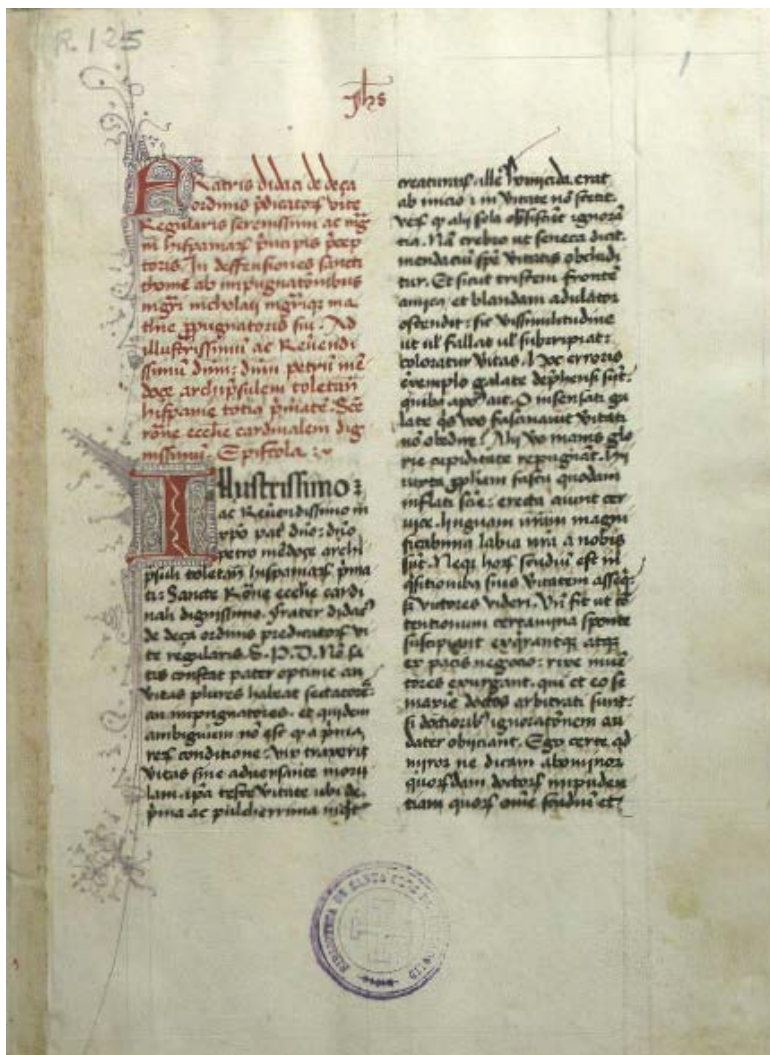 R. 125
1
Jhs
FRatris didaci de deça
ordinis p̃dicatoꝝ vite
Regularis serenissimi ac mg̃
ni hispaniaꝝ p̃ncipis p̃cep
toris. In deffensiones sancti
thome ab impugnatõnibus
mgr̃i nicholai mgr̃iqꝫ ma
thie ꝓpugnatoris sui. Ad
illustrissimũ ac Reuendi
ssimũ dñm: dñm petrũ mẽ
doçe archip̃sulem toletañ
hispanie totiꝰ p̃matẽ. Scẽ
rõne ecclie cardinalem dig
nissimũ. Epistola:
Illustrissimo:
ac Reuẽdissimo in
xp̃o pat̃ dño: dño
petro mẽdoçe archi
p̃suli toletañ hispaniaꝝ p̃ma
ti: Sancte Rõne ecclie cardi
nali dignissimo. frater didacꝰ
de deça ordinis predicatoꝝ vi
te regularis. S. P. D. Nõ sa
tis constat pater optime an
vitas plures habeat sectatores:
an impugnatores. et quidem
ambiguum nõ est a p̃ma
reꝝ conditione
vitas sine aduersante
lam. ip̃a teste vitate ubi de
p̃ma ac pulcherrima
creaturaꝝ homicida erat
ab inicio ⁊ in vitate nõ stetit.
ignorã
tia. Nã crebro ut seneca dicit.
mendaciũ spẽ vitatis obcludi
tur. Et sicut tristem frontẽ
amica et blandam adulator
ostendit: sic vissimilitudine
ut ul̃ fallat ul̃ subripiat:
coloratur vitas. Hoc erroris
exemplo galate dep̃hensi sũt:
quibꝰ ap̃o ait. O insensati ga
late q̃s vos fascinauit vitati
nõ obedire? Alii vo inanis glo
rie cupiditate repugnãt. Hii
iuxta ꝓphetam fastu quodam
inflati erecta aiunt cer
uice. linguam nr̃am magni
ficabimꝰ labia nr̃a a nobis
sũt. Neqꝫ hoꝝ studiũ est in
q̃sitionibꝰ suis vitatem asseq̃
sꝫ victores videri. Vñ fit ut cõ
tentionum certamina sponte
suscipiant exq̃rantqꝫ atqꝫ
ex pacis negocio: rixe inuẽ
tores exurgant. qui et eo se
maxie doctos arbitrati sunt:
si doctioribꝰ ignoratõnem au
dacter obiiciant. Ego certe qd̃
miror ne dicam abominor
quoꝝdam doctoꝝ impuden
tiam quoꝝ om̃e studiũ et
BIBLIOTECA DE SANTA CRUZ